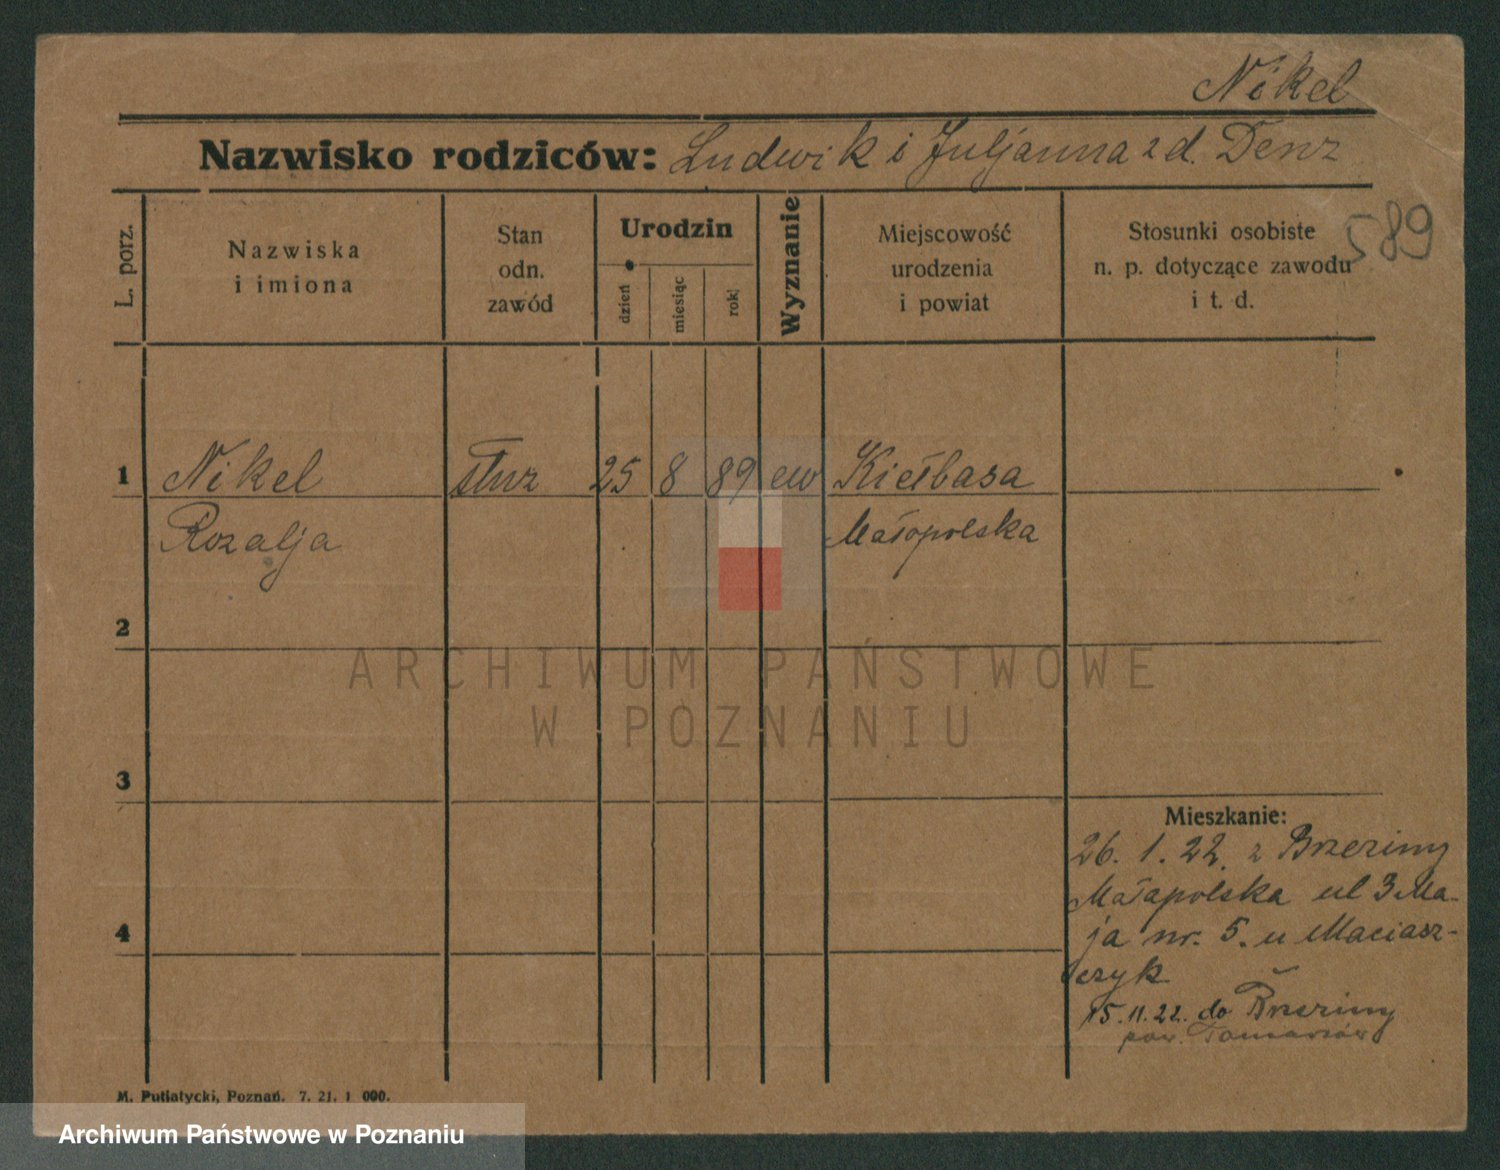 Nikel
Nazwisko rodziców: Ludwik i Juljanna z d. Denz
589
L. porz.
Nazwiska
i imiona
Stan
odn.
zawód
Urodzin
dzień
miesiąc
rok
Wyznanie
Miejscowość
urodzenia
i powiat
Stosunki osobiste
n. p. dotyczące zawodu
i t. d.
1 Nikel służ 25 8 89 ew Kiełbasa
Rozalja Małopolska
2
3
4
Mieszkanie:
26. 1. 22. z Brzeziny
Małapolska ul 3 Ma-
ja nr. 5. u Maciasz-
czyk
15.11.22. do Brzeziny
pow.
M. Putiatycki, Poznań. 7. 21. 1 000.
ARCHIWUM PAŃSTWOWE
W POZNANIU
Archiwum Państwowe w Poznaniu